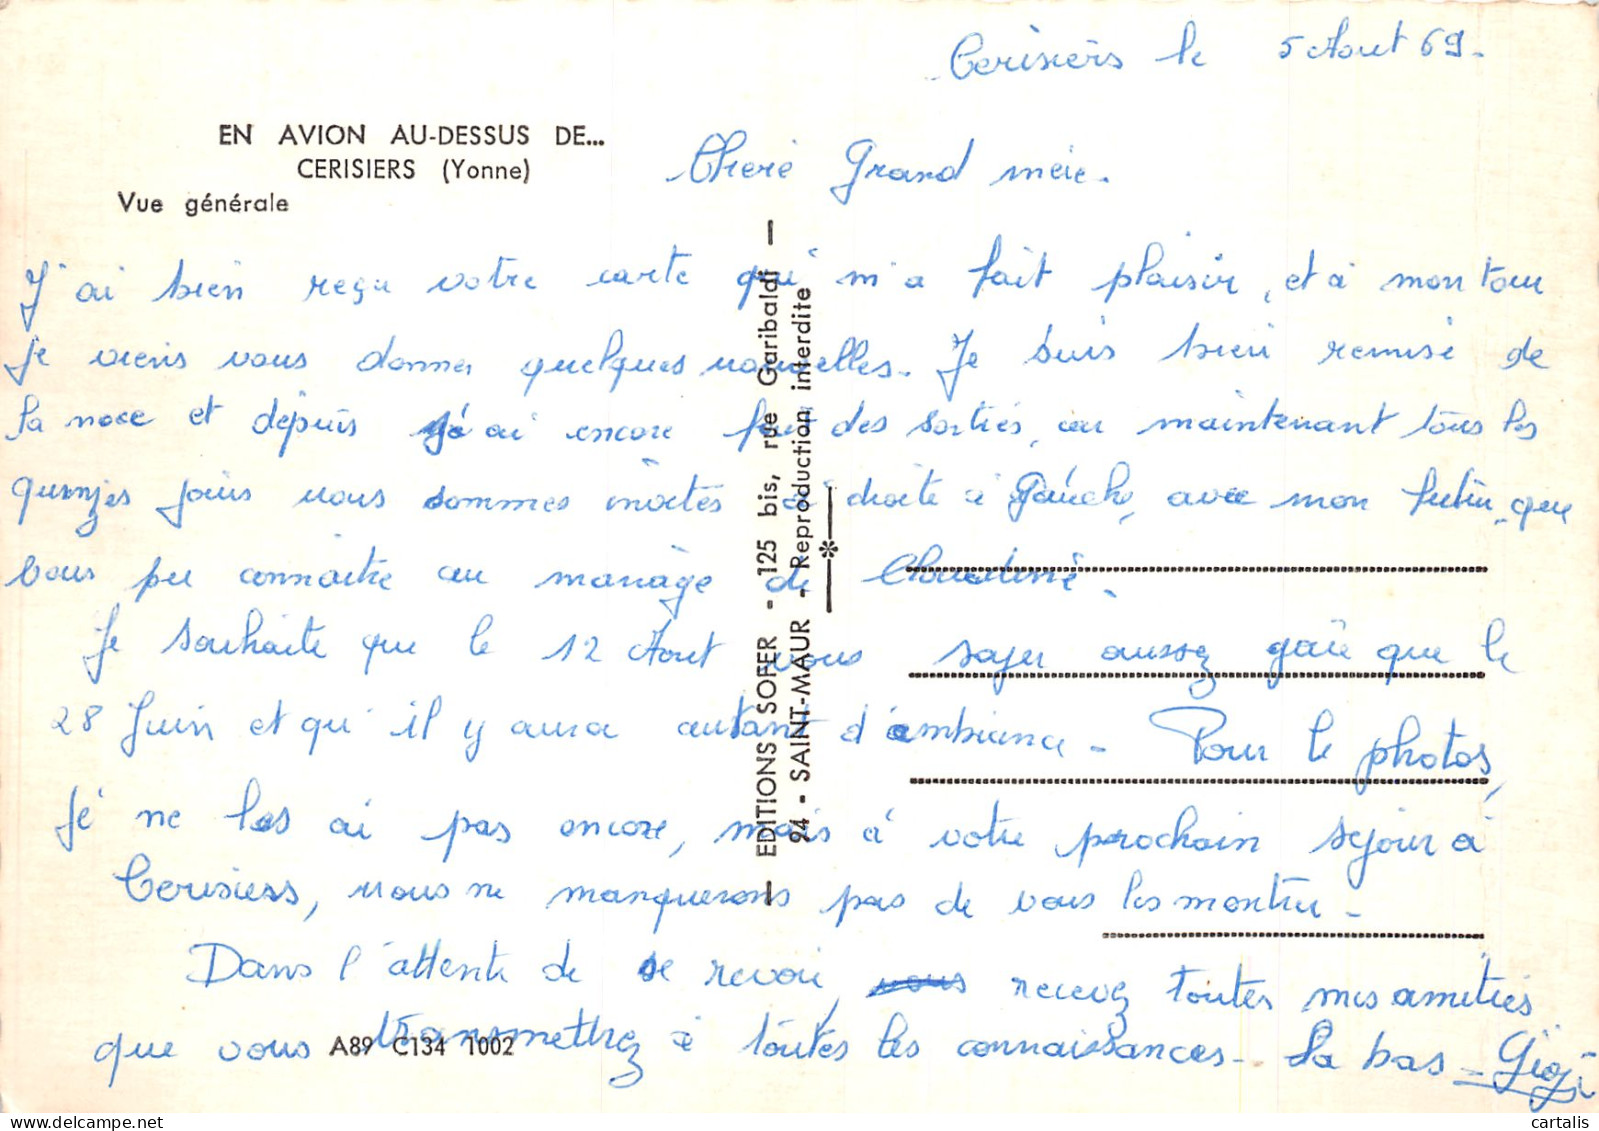 Cerisiers le 5 Aout 69.
EN AVION AU-DESSUS DE...
CERISIERS (Yonne)
Vue générale
Cherie Grand mère.
J'ai bien reçu votre carte qui m'a fait plaisir, et à mon tour
je viens vous donner quelques nouvelles. Je suis bien remise de
la noce et depuis j'ai encore fait des sorties, car maintenant tous les
quinzes jours nous sommes invités à droite à Gauche, avec mon futur, que
vous peu connaitre au mariage de Claudine.
Je souhaite que le 12 Aout vous soyer aussez gaie que le
28 Juin et qu'il y aura autant d'ambiance - Pour le photos,
Je ne les ai pas encore, mais à votre prochain sejour à
Cerisiers, nous ne manquerons pas de vous les montrer -
Dans l'attente de se revoir, recevez toutes mes amitiés
que vous transmettrez à toutes les connaissances - La bas - Gigi
EDITIONS SOFER - 125 bis, rue Garibaldi
94 - SAINT-MAUR - Reproduction interdite
A89 C134 1002
cartalis